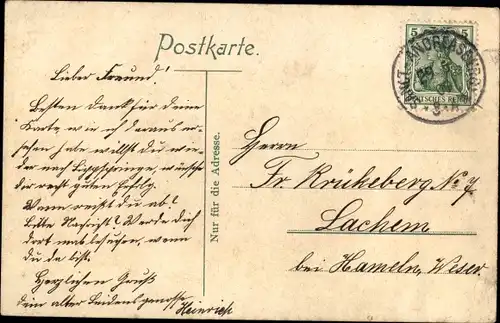 Postkarte.
Lieber Freund!
Besten Dank für deine
Karte wie ich daraus er-
sehen habe willst du wie-
der nach Lippspringe, wünsche
dir recht guten Erfolg.
Wann reist du ab?
Bitte Nachricht? Werde dich
dort mal besuchen, wenn
du da bist.
Herzlichen Gruß
dein alter Leidensgenosse
Heinrich
Nur für die Adresse.
5 5
DEUTSCHES REICH
SANKT ANDREASBERG
Herrn
Fr. Krückeberg No 7
Lachem
bei Hameln, Weser